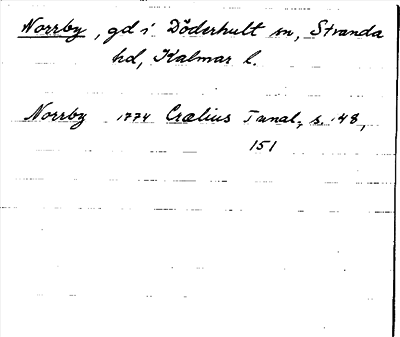 Norrby, gd i Döderhult sn, Stranda
hd, Kalmar l.
Norrby 1774 Crælius Tunal., s. 48,
151